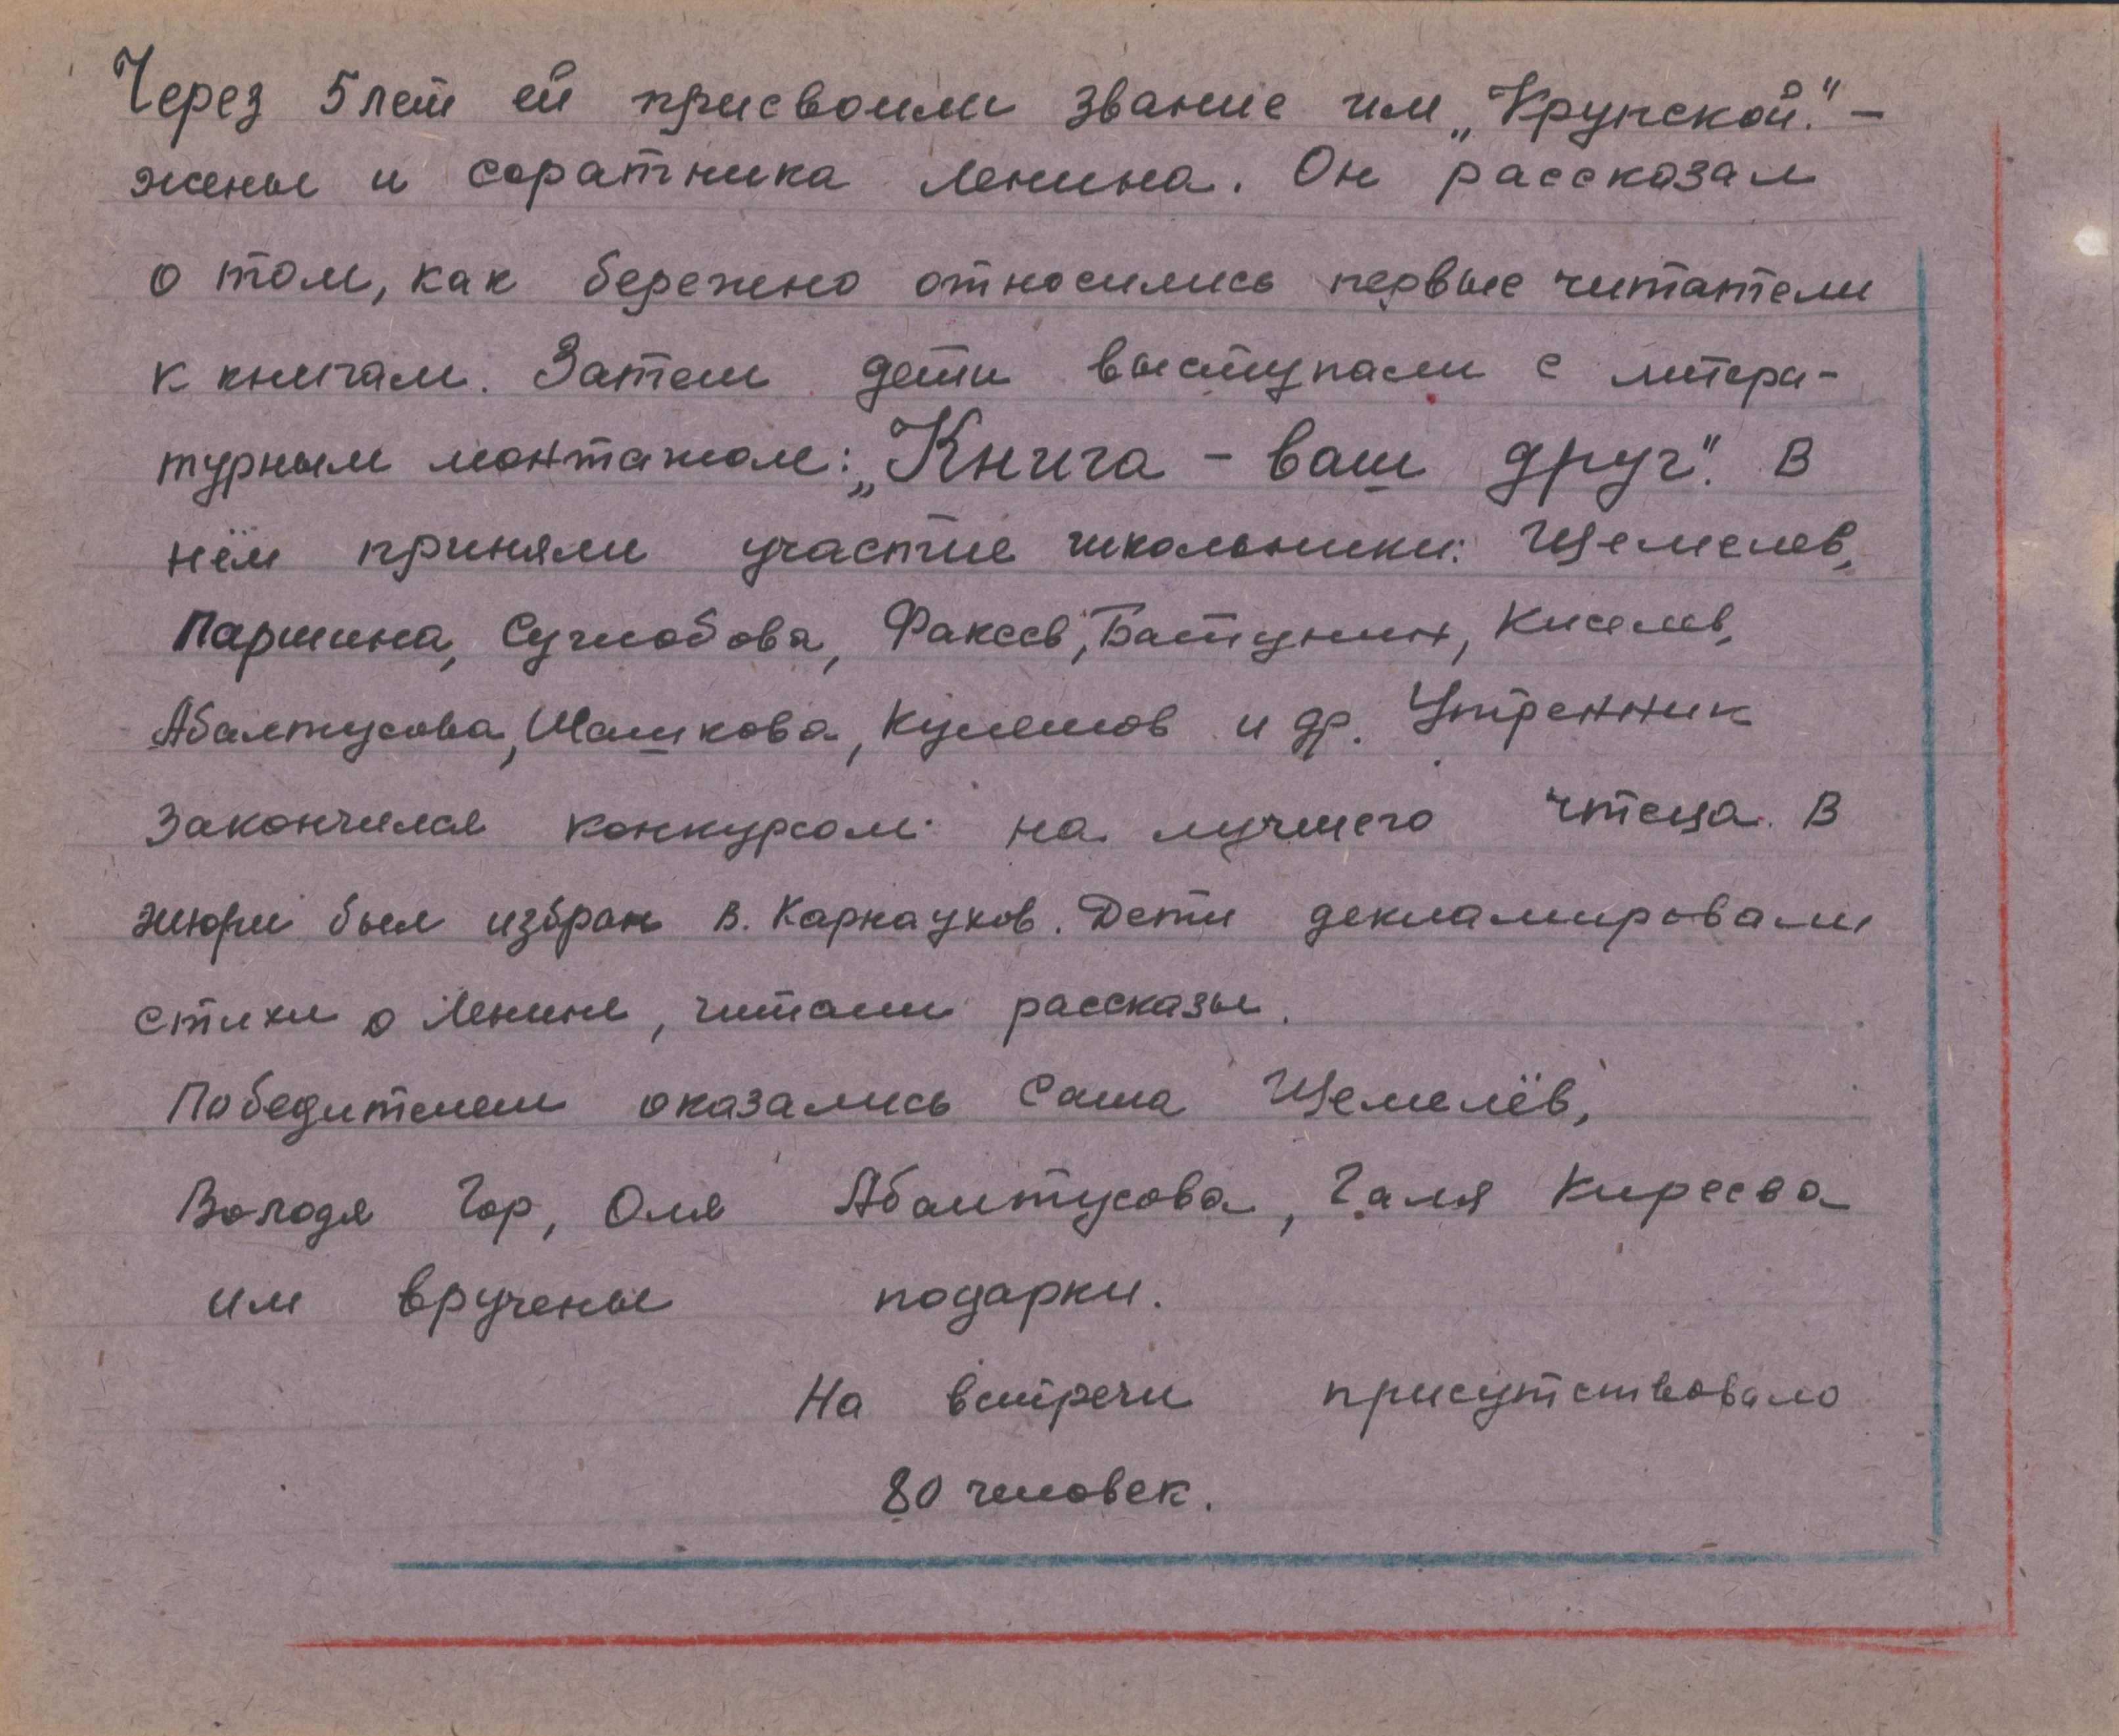 Через 5 лет ей присвоили звание им „Крупской." –
жены и соратника Ленина. Он рассказал
о том, как бережно относились первые читатели
к книгам. Затем дети выступали с литера-
турным монтажом: „Книга – ваш друг". В
нём приняли участие школьники: Щемелев,
Паршина, Сучлобова, Факеев, Батунин, Киселев,
Абалтусова, Шашкова, Кулешов и др. Утренник
закончился конкурсом на лучшего чтеца. В
жюри был избран В. Карнаухов. Дети декламировали
стихи о Ленине, читали рассказы.
Победителем оказались Саша Щемелёв,
Володя Гор, Оля Абалтусова, Галя Киреева
им вручены подарки.
На встречи присутствовало
80 человек.